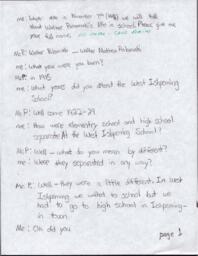 me: What's date is November 7th (1991) we will talk
about Walter Palomaki's life in school. Please give me
your full name.
Mr.P: Walter Palomaki - Walter Palomaki
me: What year were you born?
Mr.P: in 1915
me: What years did you attend the West Ishpeming
School?
Mr.P: Well some 1922-29
me: How were elementary school and high school
separate At the West Ishpeming School?
Mr.P: Well - what do you mean by different?
me: Were they separated in any way?
Mr.P: Well - they were a little different. In West
Ishpeming we went to school but we
had to go to high school in Ishpeming-
in town.
me: Oh did you
page 1